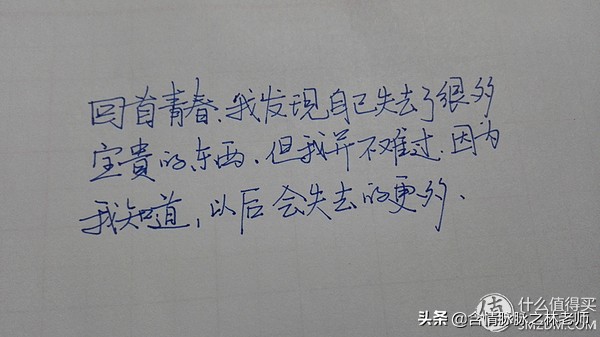 回首青春,我发现自己失去了很多
宝贵的东西,但我并不难过,因为
我知道,以后会失去的更多、
值 什么值得买
SMZDM.COM
头条 @含情脉脉之林老师